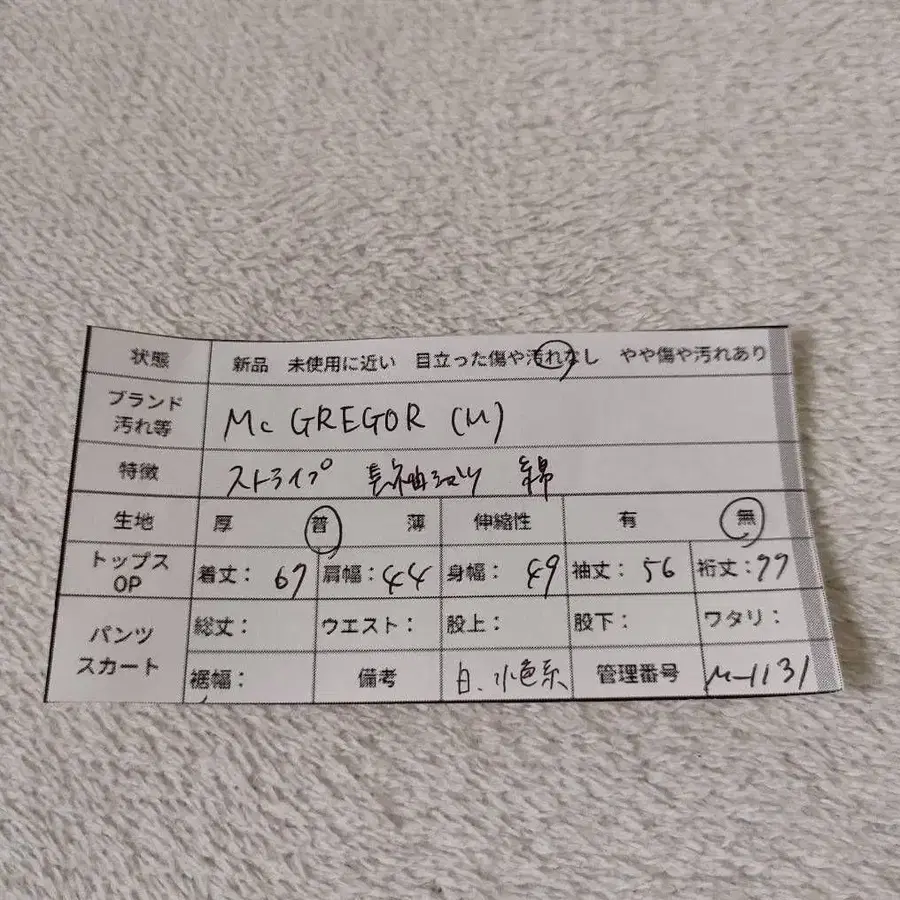 状態 新品 未使用に近い 目立った傷や汚れなし やや傷や汚れあり
ブランド
汚れ等 Mc GREGOR (M)
特徴 ストライプ 長袖シャツ 綿
生地 厚 普 薄 伸縮性 有 無
トップス
OP 着丈: 67 肩幅: 44 身幅: 49 袖丈: 56 裄丈: 77
パンツ
スカート 総丈: ウエスト: 股上: 股下: ワタリ:
裾幅: 備考 白、水色系 管理番号 M-1131